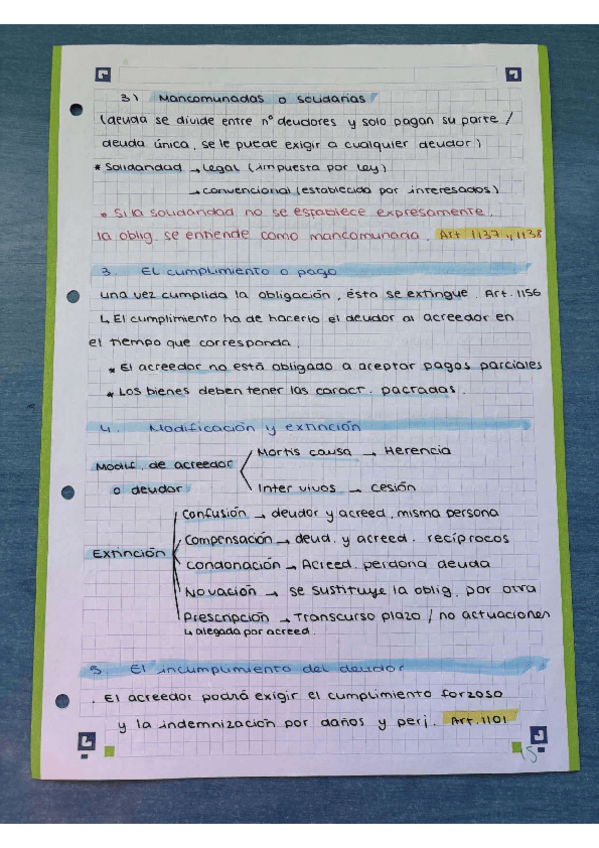 3) Mancomunadas o solidarias
(deuda se divide entre nº deudores y solo pagan su parte /
deuda única, se le puede exigir a cualquier deudor)
* Solidaridad → Legal (impuesta por ley)
→ convencional (establecida por interesados)
• Si la solidaridad no se establece expresamente,
la oblig. se entiende como mancomunada. Art 1137 y 1138
3. El cumplimiento o pago
Una vez cumplida la obligación, ésta se extingue. Art. 1156
↳ El cumplimiento ha de hacerlo el deudor al acreedor en
el tiempo que corresponda.
* El acreedor no está obligado a aceptar pagos parciales
* Los bienes deben tener las caract. pactadas.
4. Modificación y extinción
Modif. de acreedor o deudor
Mortis causa → Herencia
Inter vivos → cesión
Extinción
Confusión → deudor y acreed. misma persona
Compensación → deud. y acreed. recíprocos
Condonación → Acreed. perdona deuda
Novación → se sustituye la oblig. por otra
Prescripción → Transcurso plazo / no actuaciones
↳ alegada por acreed.
5. El incumplimiento del deudor
. El acreedor podrá exigir el cumplimiento forzoso
y la indemnización por daños y perj. Art. 1101
15